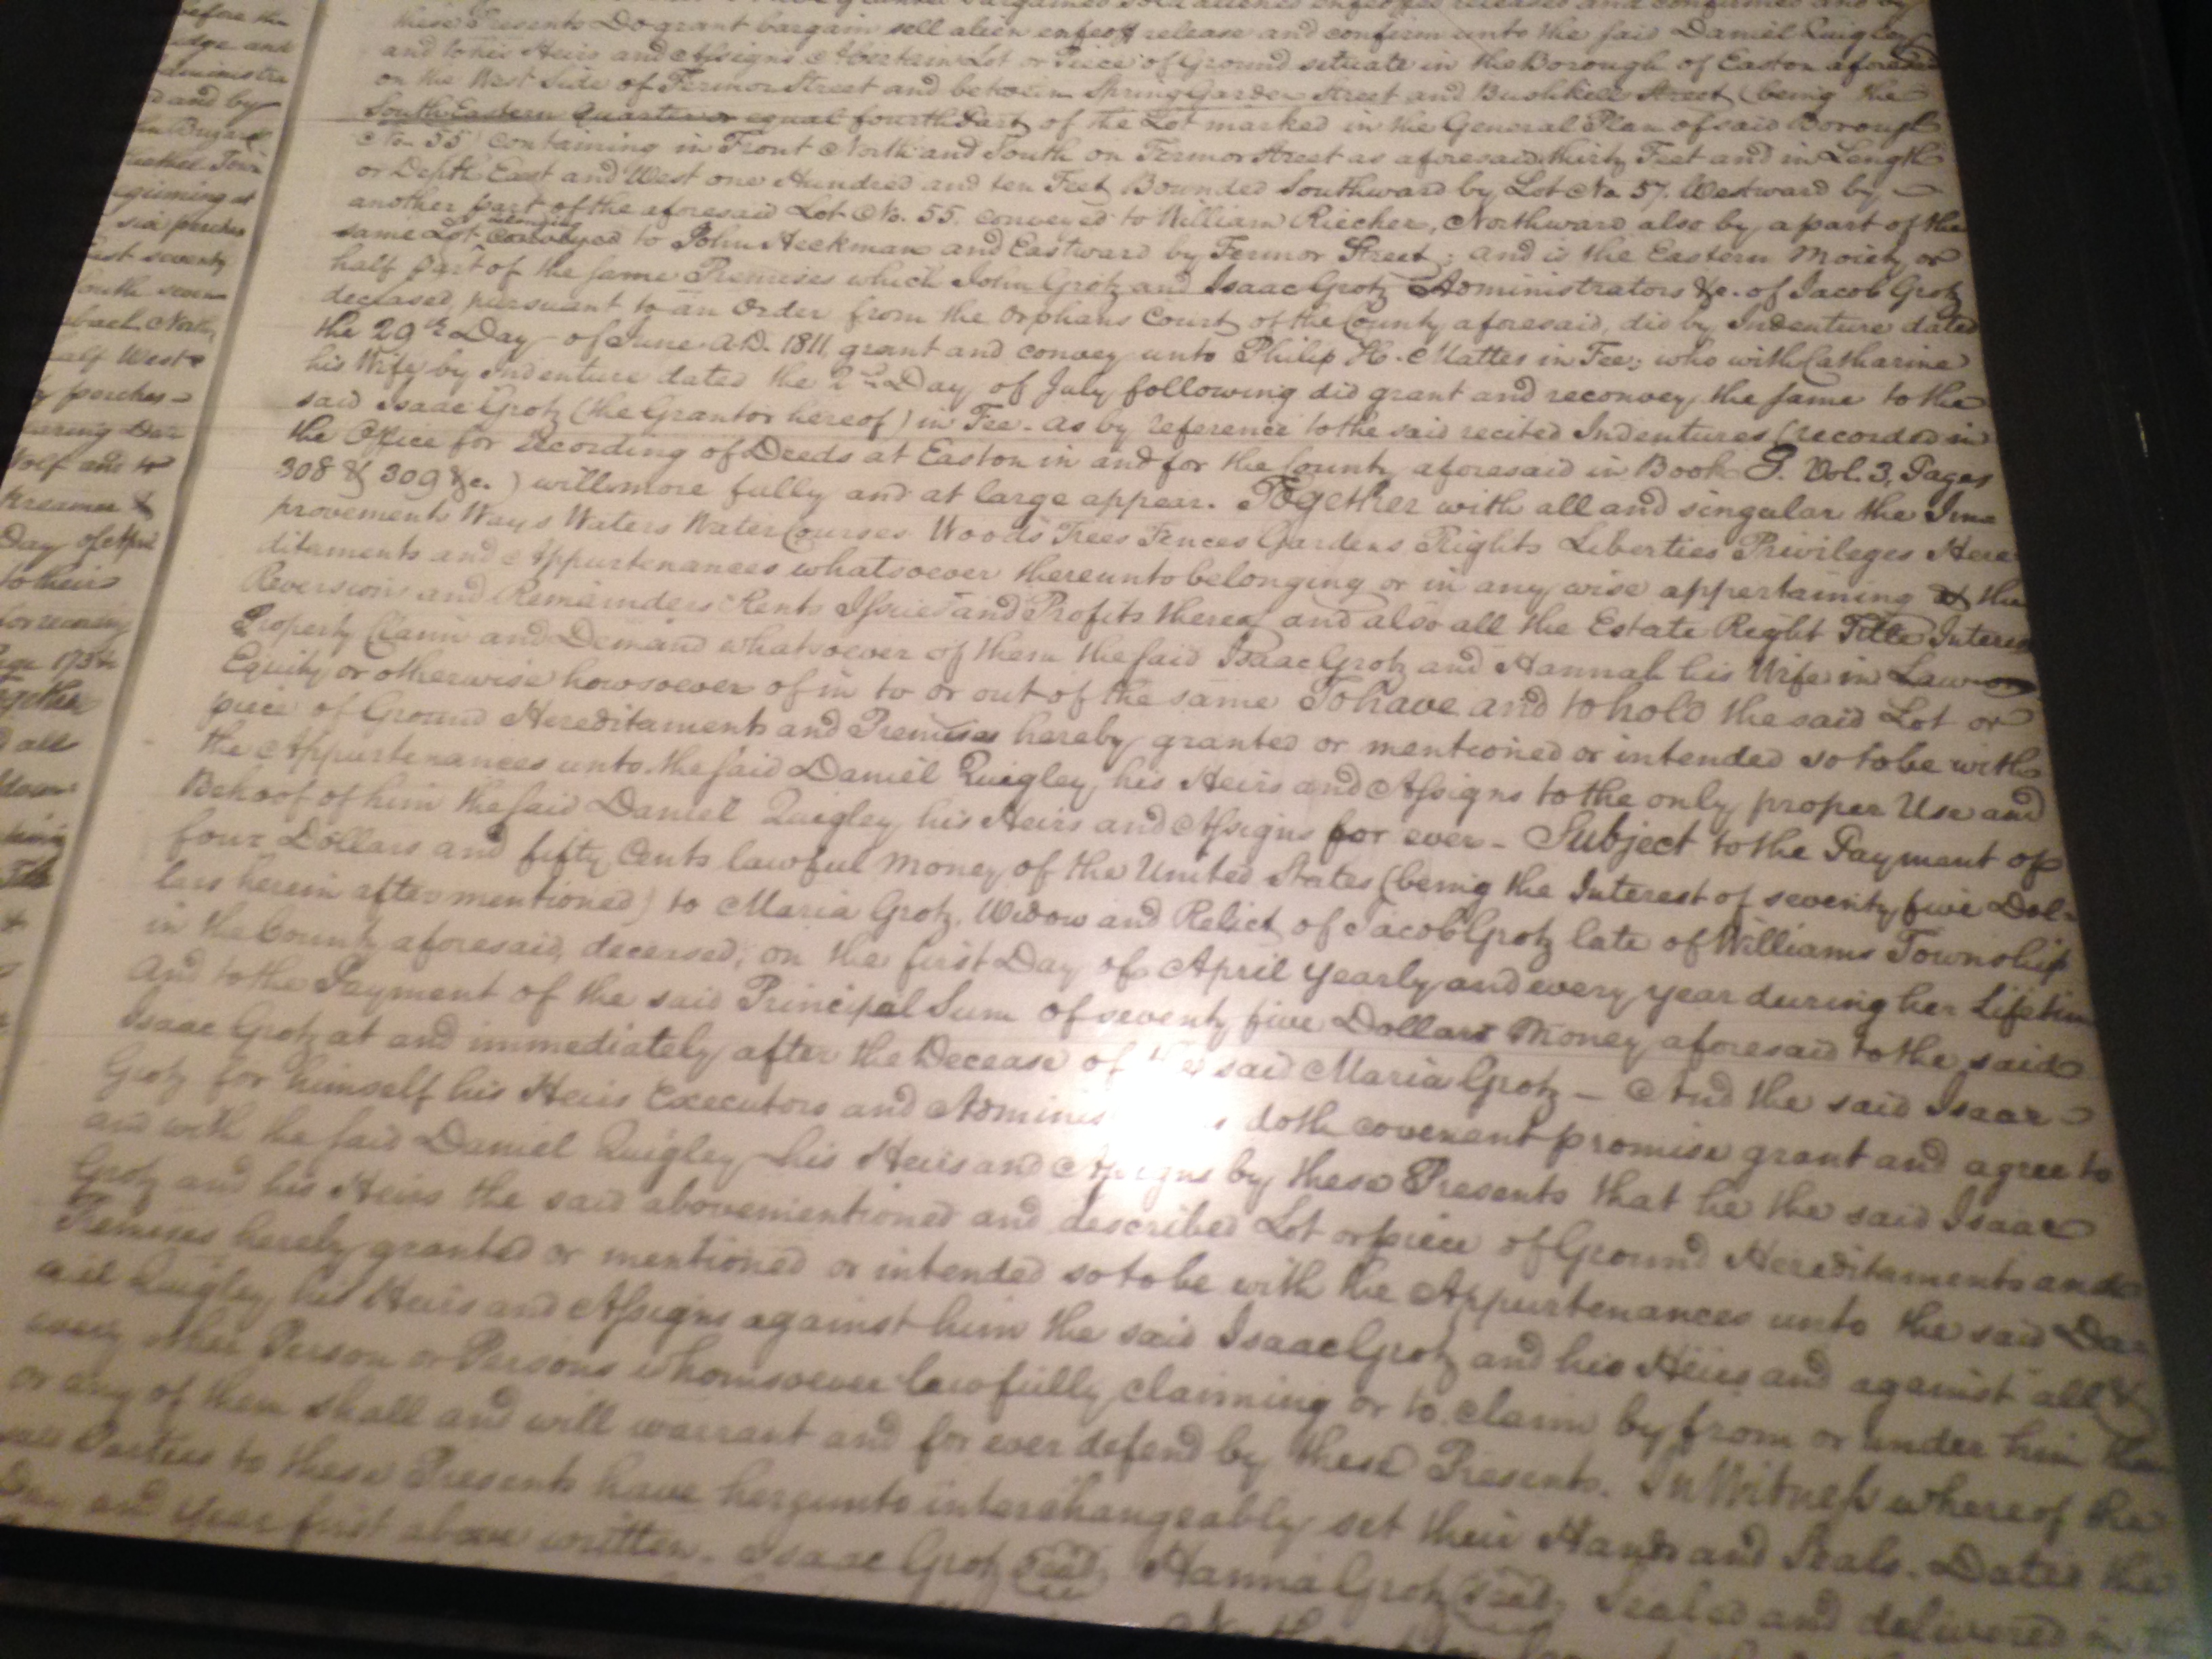 before the
edge and
administra
d and by
in Buzard
Township
beginning at
six perches
East seventy
South seven
North,
half West
perches
Wolf and to
Kreamer &
Day of April
to their
for recording
page 175
Together
all
bargained sold aliened enfeoffed released and confirmed and by
these Presents Do grant bargain sell alien enfeoff release and confirm unto the said Daniel Quigley
and to his Heirs and Assigns A Certain Lot or Piece of Ground situate in the Borough of Easton aforesaid
on the West Side of Fermor Street and between Spring Garden Street and Bushkill Street (being the
South Eastern Quarter or equal fourth Part of the Lot marked in the General Plan of said Borough
No. 55) containing in Front North and South on Fermor Street as aforesaid thirty Feet and in Length
or Depth East and West one Hundred and ten Feet Bounded Southward by Lot No. 57. Westward by
another part of the aforesaid Lot No. 55. conveyed to William Riecher, Northward also by a part of the
same Lot conveyed to John Heckman and Eastward by Fermor Street; and is the Eastern Moiety or
half part of the same Premises which John Grotz and Isaac Grotz Administrators &c. of Jacob Grotz
deceased, pursuant to an Order from the Orphans Court of the County aforesaid, did by Indenture dated
the 29th Day of June A.D. 1811, grant and convey unto Philip H. Mattes in Fee; who with Catharine
his Wife by Indenture dated the 2nd Day of July following did grant and reconvey the same to the
said Isaac Grotz (the Grantor hereof) in Fee. As by reference to the said recited Indentures (recorded in
the Office for Recording of Deeds at Easton in and for the County aforesaid in Book G. Vol. 3, Pages
308 & 309 &c.) will more fully and at large appear. Together with all and singular the Im=
provements Ways Waters Water Courses Woods Trees Fences Gardens Rights Liberties Privileges Here
ditaments and Appurtenances whatsoever thereunto belonging or in any wise appertaining & the
Reversions and Remainders Rents Issues and Profits thereof and also all the Estate Right Title Interest
Property Claim and Demand whatsoever of them the said Isaac Grotz and Hannah his Wife in Law or
Equity or otherwise howsoever of in to or out of the same To have and to hold the said Lot or
piece of Ground Hereditaments and Premises hereby granted or mentioned or intended so to be with
the Appurtenances unto the said Daniel Quigley, his Heirs and Assigns to the only proper Use and
Behoof of him the said Daniel Quigley his Heirs and Assigns for ever - Subject to the Payment of
four Dollars and fifty Cents lawful Money of the United States (being the Interest of seventy five Dol-
lars herein after mentioned) to Maria Grotz, Widow and Relict of Jacob Grotz late of Williams Township
in the County aforesaid, deceased, on the first Day of April yearly and every year during her Lifetim
And to the Payment of the said Principal Sum of seventy five Dollars Money aforesaid to the said
Isaac Grotz at and immediately after the Decease of the said Maria Grotz - And the said Isaac
Grotz for himself his Heirs Executors and Adminis s doth covenant promise grant and agree to
and with the said Daniel Quigley his Heirs and Assigns by these Presents that he the said Isaac
Grotz and his Heirs the said abovementioned and described Lot or piece of Ground Hereditaments and
Premises hereby granted or mentioned or intended so to be with the Appurtenances unto the said Dan
iel Quigley his Heirs and Assigns against him the said Isaac Grotz and his Heirs and against all &
every other Person or Persons whomsoever lawfully claiming or to claim by from or under him them
or any of them shall and will warrant and for ever defend by these Presents. In Witness whereof the
said Parties to these Presents have hereunto interchangeably set their Hands and Seals. Dated the
Day and Year first above written. Isaac Grotz Seal, Hanna Grotz Seal, Sealed and delivered in